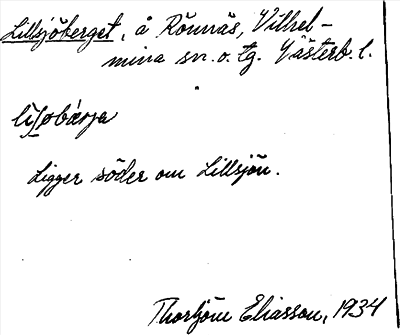 Lillsjöberget, å Rönnäs, Vilhel-
mina sn. o. tg. Västerb. l.
Ligger söder om Lillsjön.
Thorbjörn Eliasson, 1934